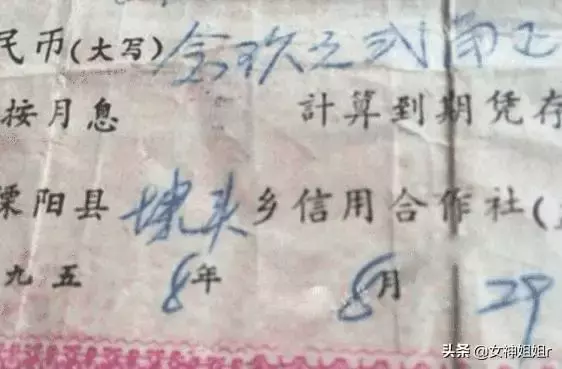 民币(大写)
按月息 計算到期凭存
溧阳县 埭头 乡信用合作社(
九五8年 8月 29
头条 @女神姐姐r